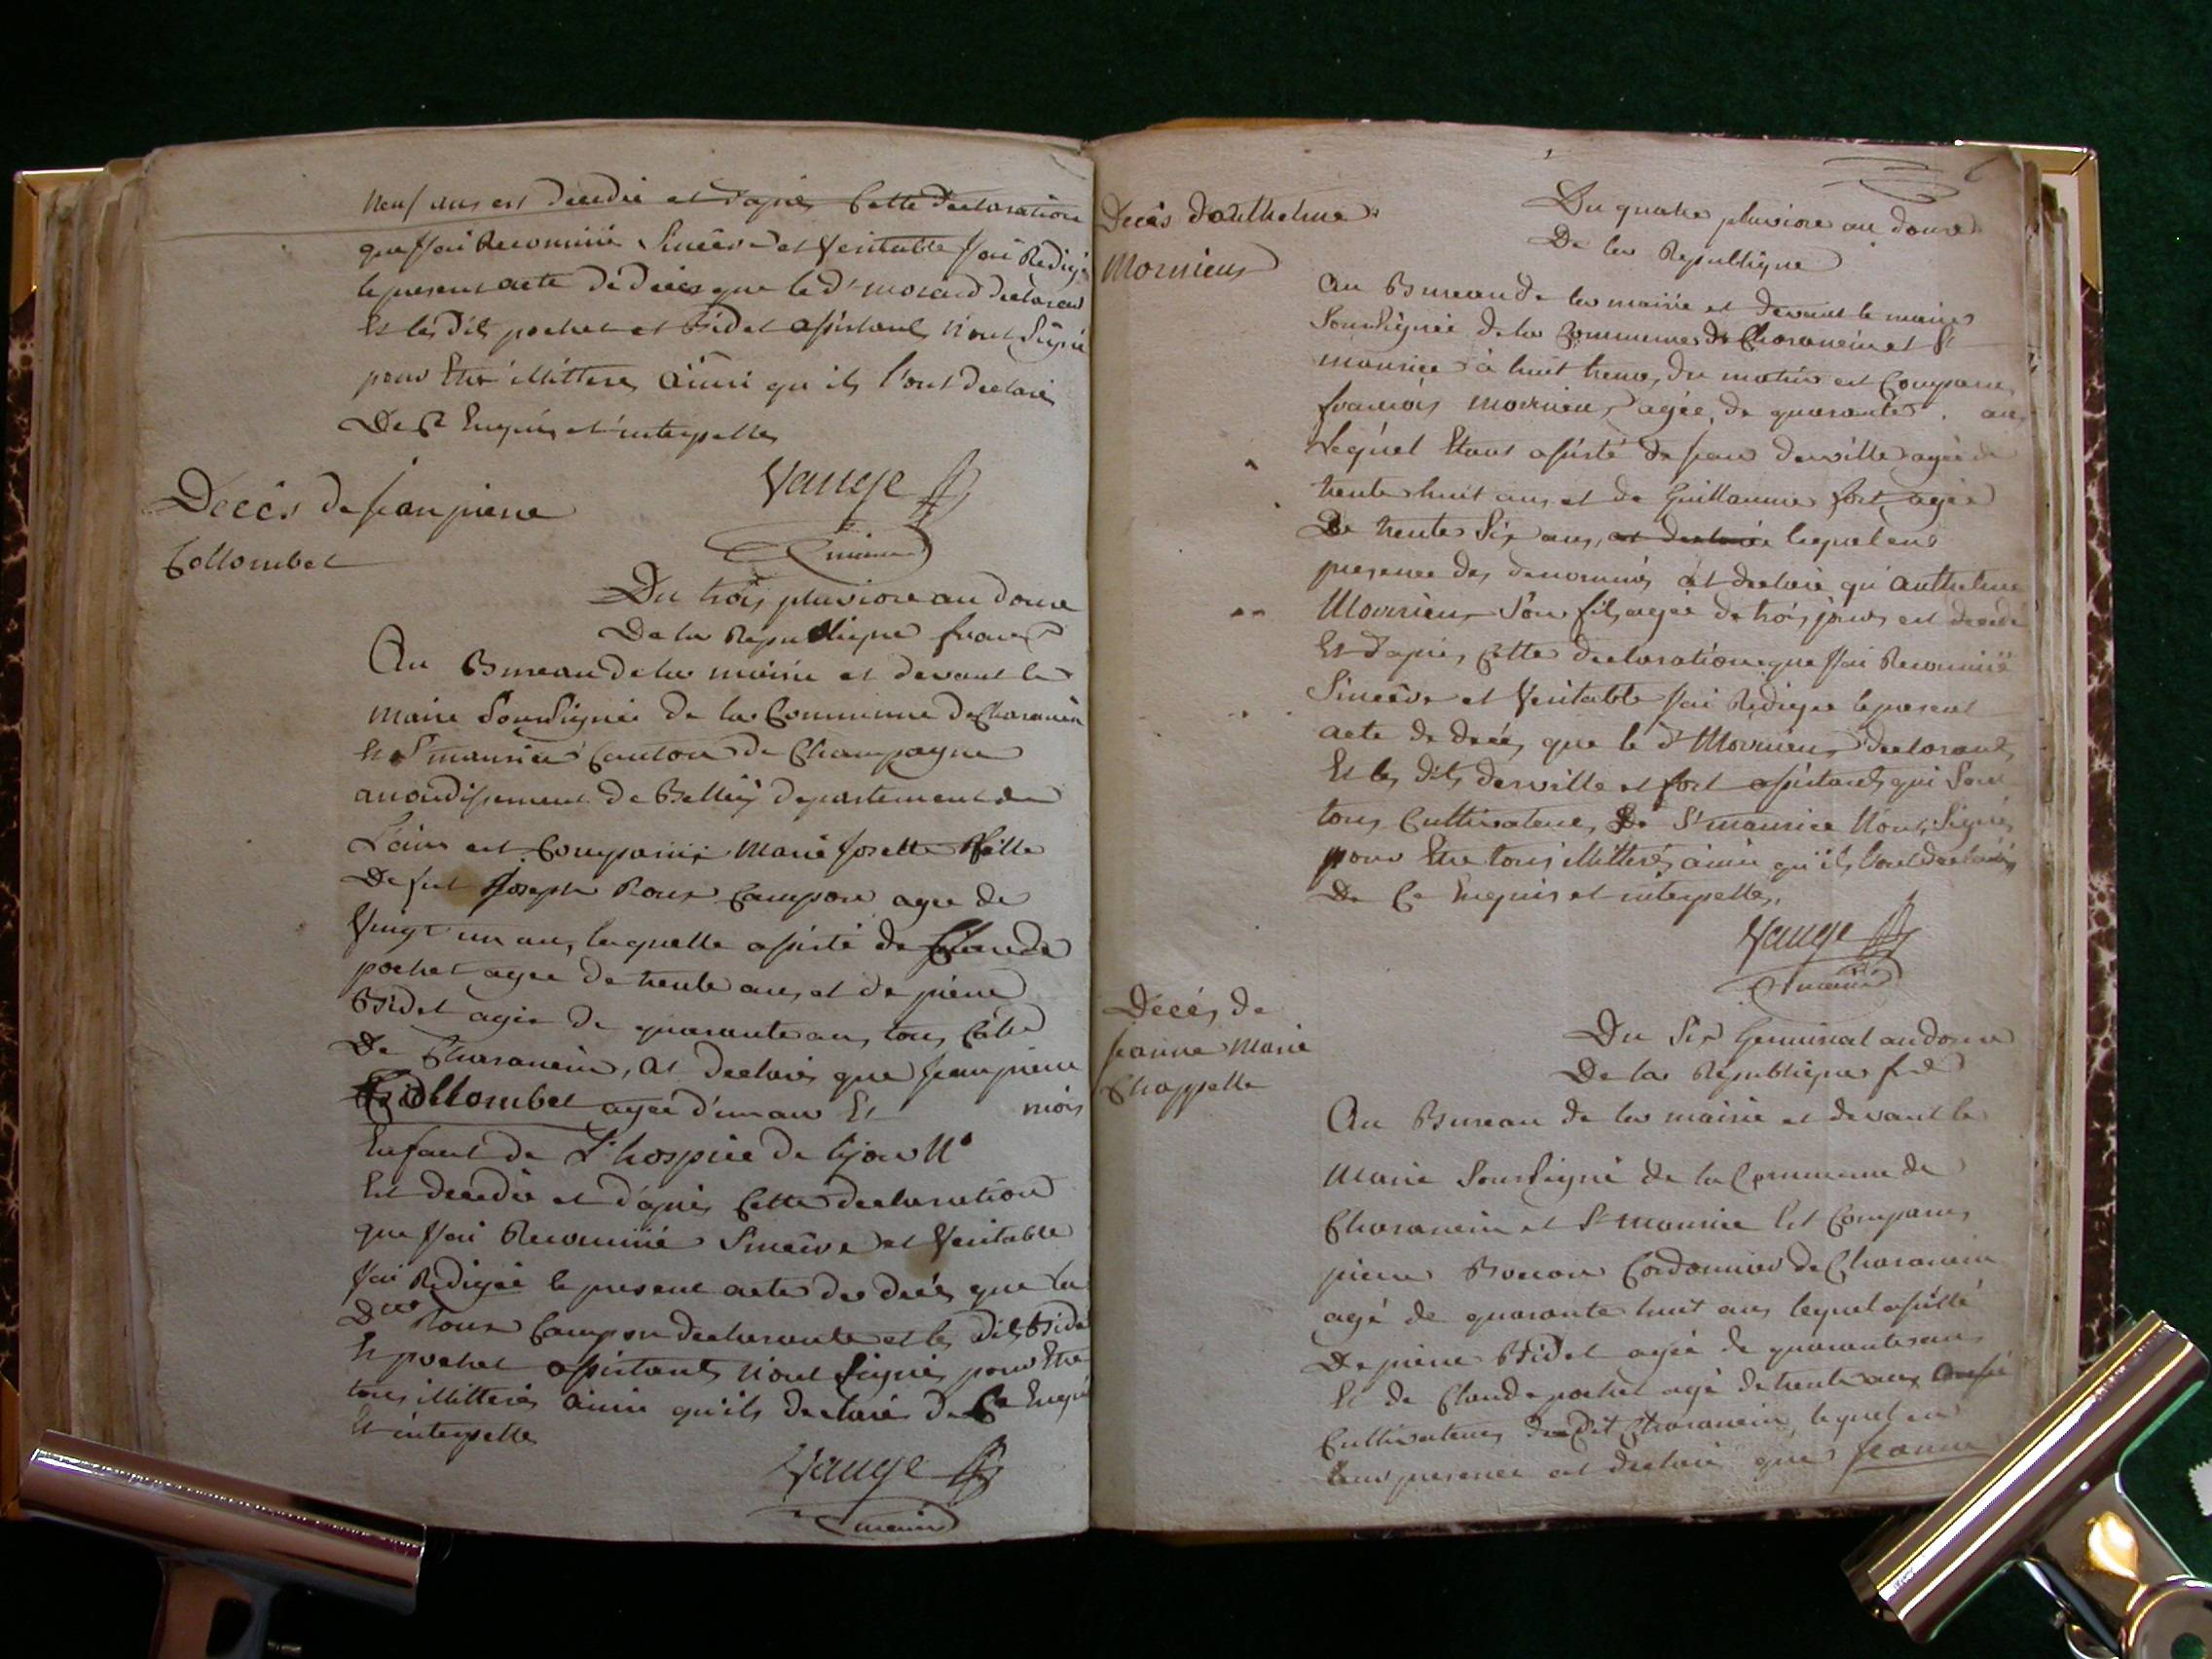 neuf ans est decedé et d'apres Cette declaration
que J'ai Reconnüe Sincère et Veritable J'ai Redigé
le present acte de decès que le dt morard declarant
Et les dits pochet et Bidet assistant n'ont Signé
pour Etre illitterés Ainsi qu'ils l'ont declaré
De Ce Enquis et interpellés
Vauge
maire
Decès de Jean pierre
Collombet
Du trois pluviose an douze
De la Republique franc
Au Bureau de la mairie et devant le
maire Soussigné de la Commune de Charancin
Et St maurice Canton de Champagne
arrondissement de Belley departement de
L'ain est Comparüe Marie Josette fille
De fut Joseph Roux Campon agée de
Vingt un an, laquelle assisté de Claude
pochet agée de trente ans, et de pierre
Bidet agée de quarante ans tous
De Charancin, at declaré que Jean pierre
Collombet agée d'un an Et mois
Enfant de L'hospice de lyon No
Est decedé et d'aprés Cette declaration
que J'ai Reconnüe Sincère et Veritable
J'ai Redigée le present acte de decés que la
Roux Campon declarante et les dits Bidet
Et pochet assistants n'ont Signé pour Etre
tous illitterés Ainsi qu'ils declaré de Ce Enquis
Et interpellés
Vauge
maire
Decès d'anthelme
Mornieux
Du quatre pluviose an douze
De la Republique
Au Bureau de la mairie et devant le maire
Soussigné de la Commune de Charancin et St
maurice à huit heures du matin est Comparu
françois mornieux agée de quarante ans
Lequel Etant assisté de Jean derville agée de
trente huit ans et de Guillaume fort agée
De trente Six ans, at declaré lequel en
presence des denommés at declaré qu'anthelme
Mornieux Son fils agée de trois jours est decedé
Et d'apres Cette declaration que J'ai Reconnüe
Sincère et Veritable J'ai Redigée le present
acte de decés que le dt Mornieux declarant
Et les dits derville et fort assistants qui Sont
tous Cultivateurs De St maurice n'ont Signé
pour Etre tous illitterés ainsi qu'ils l'ont declaré
De Ce Enquis et interpellés
Vauge
maire
Decés de
Jeanne Marie
Chappelle
Du Six Germinal an douze
De la Republique
Au Bureau de la mairie et devant le
Maire Soussigné de la Commune de
Charancin et St Maurice Est Comparu
pierre Cordonnier de Charancin
agé de quarante huit ans lequel assisté
De pierre Bidet agée de quarante ans
Et de Claude pochet agé de trente ans
Cultivateurs dudit Charancin, lequel en
leur presence at declaré que Jeanne